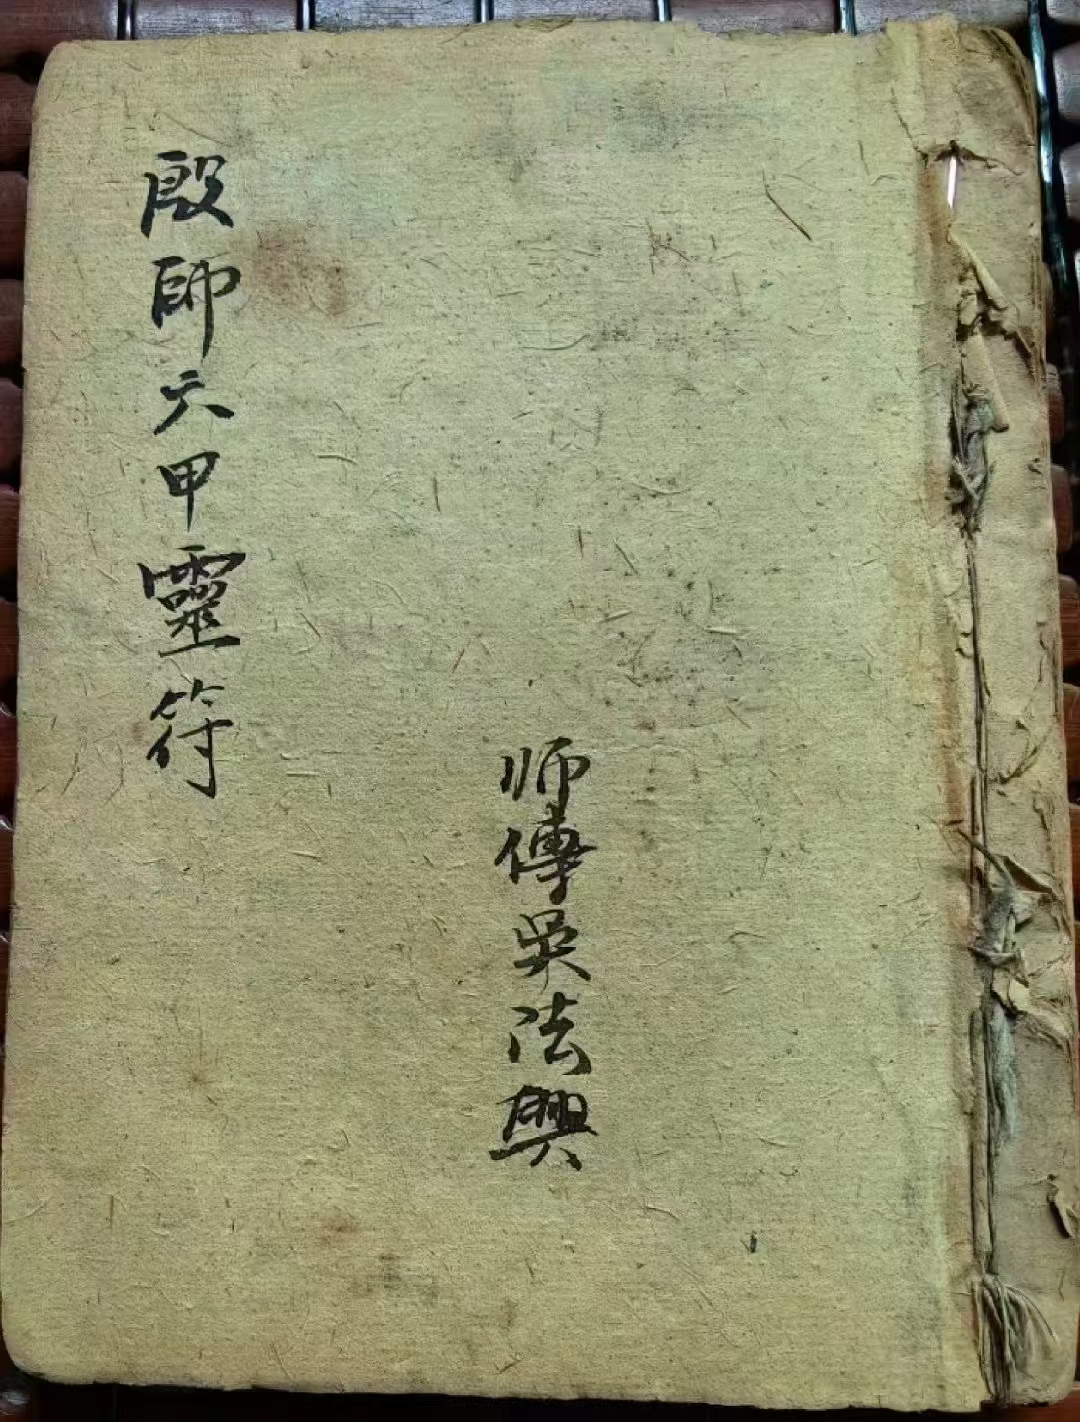 师傳吳法興
殷帥六甲靈符